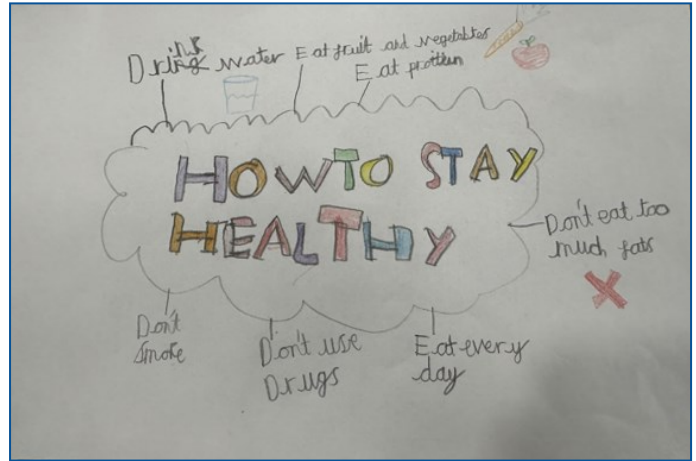 Drink water
Eat fruit and vegetables
Eat prottien
HOW TO STAY
HEALTHY
Don't eat too
much fats
Don't
smoke
Don't use
Drugs
Eat every
day